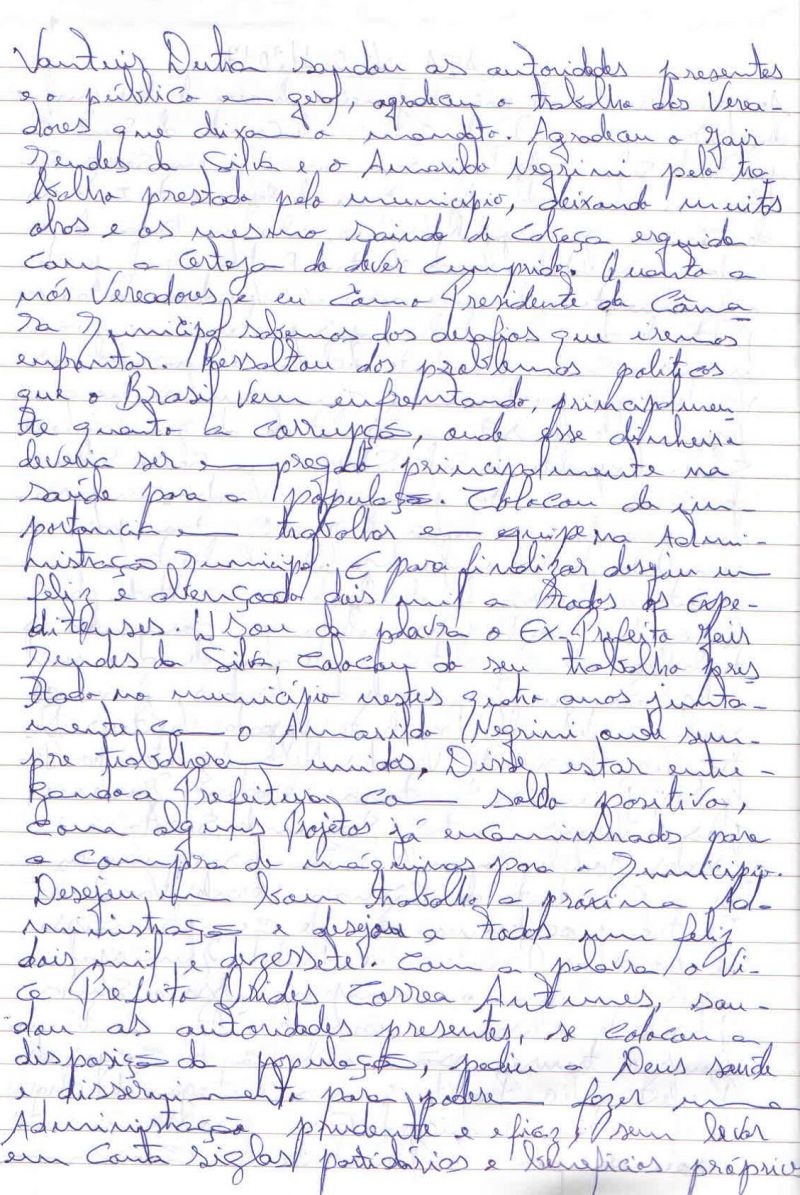 Vantuir Dutra saudou as autoridades presentes
e o público em geral, agradeceu o trabalho dos Verea-
dores que deixam o mandato. Agradeceu o Jair
Mendes da Silva e o Amarildo Negrini pelo tra-
balho prestado pelo município, deixando muitas
obras e os mesmo saindo de cabeça erguida
com a certeza do dever cumprido. Quanto a
nós Vereadores, e eu como Presidente da Câma-
ra Municipal sabemos dos desafios que iremos
enfrentar. Ressaltou dos problemas políticos
que o Brasil vem enfrentando, principalmen-
te quanto a corrupção, onde esse dinheiro
deveria ser empregado principalmente na
saúde para a população. Colocou da im-
portancia em trabalhar em equipe na Admi-
nistração Municipal. E para finalizar desejou um
feliz e abençoado dois mil a todos os Expe-
ditenses. Usou da palavra o Ex-Prefeito Jair
Mendes da Silva, colocou do seu trabalho pres
tado no município nestes quatro anos junta-
mente com o Amarildo Negrini onde sem-
pre trabalharam unidos. Disse estar entre-
gando a Prefeitura com saldo positivo,
com alguns Projetos já encaminhados para
a compra de máquinas para o Município.
Desejou um bom trabalho a próxima Ad-
ministração e desejou a todos um feliz
dois mil e dezessete. Com a palavra o Vi-
ce Prefeito Orides Correa Antunes, sau-
dou as autoridades presentes, se colocou a
disposição da população, pediu a Deus saúde
e dissernimento para poderem fazer uma
Administração prudente e eficaz, sem levar
em conta siglas partidárias e benefícios próprios